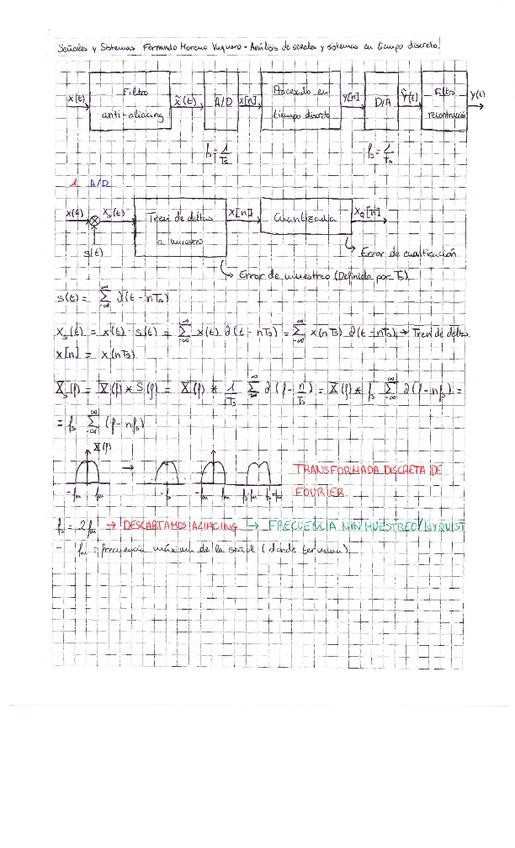 Señales y Sistemas Fernando Moreno - Análisis de señales y sistemas en tiempo discreto!
x(t) Filtro anti-aliacing x̃(t) A/D x[n] Procesado en tiempo discreto y[n] D/A ỹ(t) Filtro reconstrucción y(t)
fs = 1/Ts fs = 1/Ts
1 A/D
x(t) Xs(t) Tren de deltas a muestras X[n] Cuantizador XQ[n]
s(t) Error de cuantificación
Error de muestreo (Definido por Ts)
s(t) = Σ ∂(t - nTs)
Xs(t) = x(t) · s(t) = Σ x(t) ∂(t - nTs) = Σ x(nTs) ∂(t - nTs) → Tren de deltas
x[n] = x(nTs)
Xs(f) = X(f) * S(f) = X(f) * 1/Ts Σ ∂(f - n/Ts) = X(f) * fs Σ ∂(f - nfs) =
= fs Σ (f - nfs)
X(f) → TRANSFORMADA DISCRETA DE
-fm fm -fs -fm fm FOURIER
fs = 2fm → DESCARTAMOS ALIACING → FRECUENCIA MIN MUESTREO / NYQUIST
fm = frecuencia máxima de la señal (donde termina)